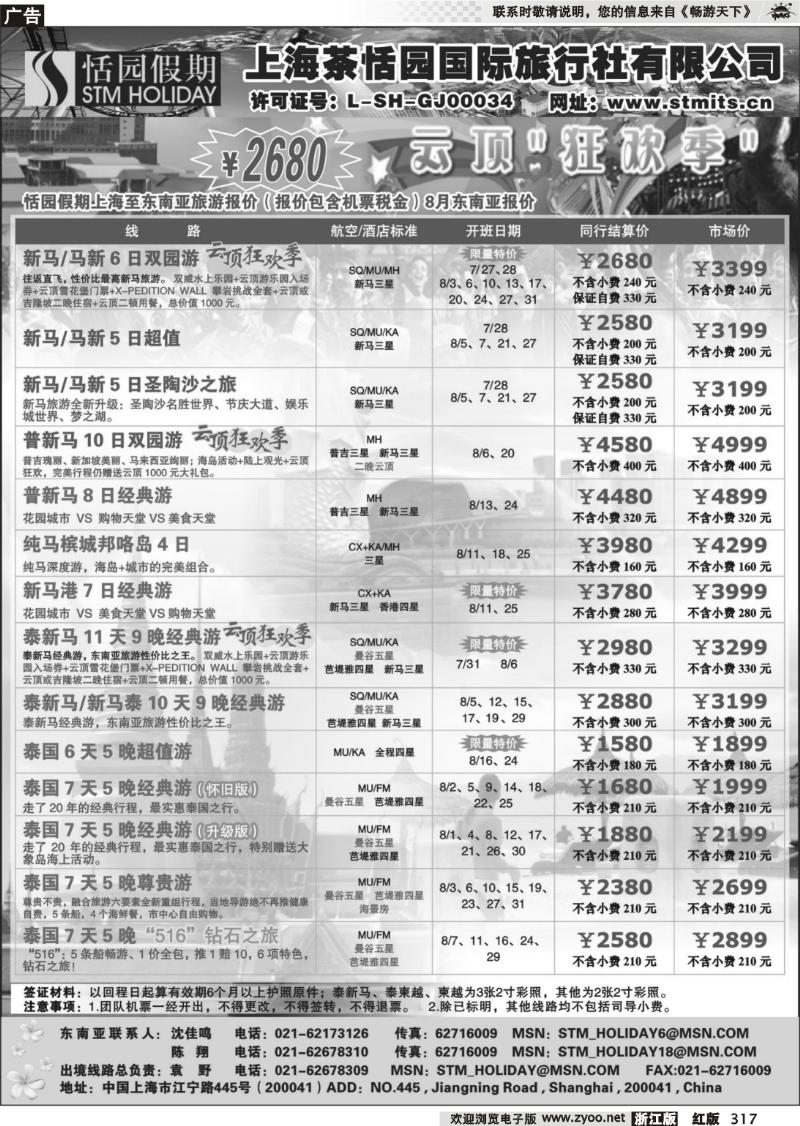 广告
联系时敬请说明，您的信息来自《畅游天下》
恬园假期
STM HOLIDAY
上海茶恬园国际旅行社有限公司
许可证号：L-SH-GJ00034 网址：www.stmits.cn
¥2680
云顶"狂欢季"
恬园假期上海至东南亚旅游报价（报价包含机票税金）8月东南亚报价
线 路 航空/酒店标准 开班日期 同行结算价 市场价
新马/马新 6 日双园游 云顶狂欢季
往返直飞，性价比最高新马旅游。 双威水上乐园+云顶游乐园入场
券+云顶雪花堡门票+X-PEDITION WALL 攀岩挑战全套+云顶或
吉隆坡二晚住宿+云顶二顿用餐，总价值 1000 元。
SQ/MU/MH
新马三星
限量特价
7/27、28
8/3、6、10、13、17、
20、24、27、31
¥2680
不含小费 240 元
保证自费 330 元
¥3399
不含小费 240 元
新马/马新 5 日超值
SQ/MU/KA
新马三星
7/28
8/5、7、21、27
¥2580
不含小费 200 元
保证自费 330 元
¥3199
不含小费 200 元
新马/马新 5 日圣陶沙之旅
新马旅游全新升级：圣陶沙名胜世界、节庆大道、娱乐
城世界、梦之湖。
SQ/MU/KA
新马三星
7/28
8/5、7、21、27
¥2580
不含小费 200 元
保证自费 330 元
¥3199
不含小费 200 元
普新马 10 日双园游 云顶狂欢季
普吉瑰丽、新加坡美丽、马来西亚绚丽；海岛活动+陆上观光+云顶
狂欢，完美行程仍赠送云顶 1000 元大礼包。
MH
普吉三星 新马三星
二晚云顶
8/6、20
¥4580
不含小费 400 元
¥4999
不含小费 400 元
普新马 8 日经典游
花园城市 VS 购物天堂 VS 美食天堂
MH
普吉三星 新马三星
8/13、24
¥4480
不含小费 320 元
¥4899
不含小费 320 元
纯马槟城邦咯岛 4 日
纯马深度游，海岛+城市的完美组合。
CX+KA/MH
三星
8/11、18、25
¥3980
不含小费 160 元
¥4299
不含小费 160 元
新马港 7 日经典游
花园城市 VS 美食天堂 VS 购物天堂
CX+KA
新马三星 香港四星
限量特价
8/11、25
¥3780
不含小费 280 元
¥3999
不含小费 280 元
泰新马 11 天 9 晚经典游 云顶狂欢季
泰新马经典游，东南亚旅游性价比之王。 双威水上乐园+云顶游乐
园入场券+云顶雪花堡门票+X-PEDITION WALL 攀岩挑战全套+
云顶或吉隆坡二晚住宿+云顶二顿用餐，总价值 1000 元。
SQ/MU/KA
曼谷五星
芭堤雅四星 新马三星
限量特价
7/31 8/6
¥2980
不含小费 330 元
¥3299
不含小费 330 元
泰新马/新马泰 10 天 9 晚经典游
泰新马经典游，东南亚旅游性价比之王。
SQ/MU/KA
曼谷五星
芭堤雅四星 新马三星
8/5、12、15、
17、19、29
¥2880
不含小费 300 元
¥3199
不含小费 300 元
泰国 6 天 5 晚超值游
MU/KA 全程四星
限量特价
8/16、24
¥1580
不含小费 180 元
¥1899
不含小费 180 元
泰国 7 天 5 晚经典游（怀旧版）
走了 20 年的经典行程，最实惠泰国之行。
MU/FM
曼谷五星 芭堤雅四星
8/2、5、9、14、18、
22、25
¥1680
不含小费 210 元
¥1999
不含小费 210 元
泰国 7 天 5 晚经典游（升级版）
走了 20 年的经典行程，最实惠泰国之行，特别赠送大
象岛海上活动。
MU/FM
曼谷五星
芭堤雅四星
8/1、4、8、12、17、
21、26、30
¥1880
不含小费 210 元
¥2199
不含小费 210 元
泰国 7 天 5 晚尊贵游
尊贵不贵，融合旅游六要素全新重组行程，当地导游绝不再推健康
自费，5 条船，4 个海鲜餐，市中心自由购物。
MU/FM
曼谷五星 芭堤雅四星
海景房
8/3、6、10、15、19、
23、27、31
¥2380
不含小费 210 元
¥2699
不含小费 210 元
泰国 7 天 5 晚“516”钻石之旅
“516”：5 条船畅游、1 价全包，推 1 赔 10，6 项特色，
钻石之旅！
MU/FM
曼谷五星
芭堤雅四星
8/7、11、16、24、
29
¥2580
不含小费 210 元
¥2899
不含小费 210 元
签证材料：以回程日起算有效期6个月以上护照原件；泰新马、泰柬越、柬越为3张2寸彩照，其他为2张2寸彩照。
注意事项：1.团队机票一经开出，不得更改，不得签转，不得退票。 2.除已标明，其他线路均不包括司导小费。
东南亚联系人：沈佳鸣 电话：021-62173126 传真：62716009 MSN：STM_HOLIDAY6@MSN.COM
陈 翔 电话：021-62678310 传真：62716009 MSN：STM_HOLIDAY18@MSN.COM
出境线路总负责：袁 野 电话：021-62678309 MSN：STM_HOLIDAY@MSN.COM FAX:021-62716009
地址：中国上海市江宁路445号（200041）ADD：NO.445 , Jiangning Road , Shanghai , 200041 , China
欢迎浏览电子版 www.zyoo.net 浙江版 红版 317